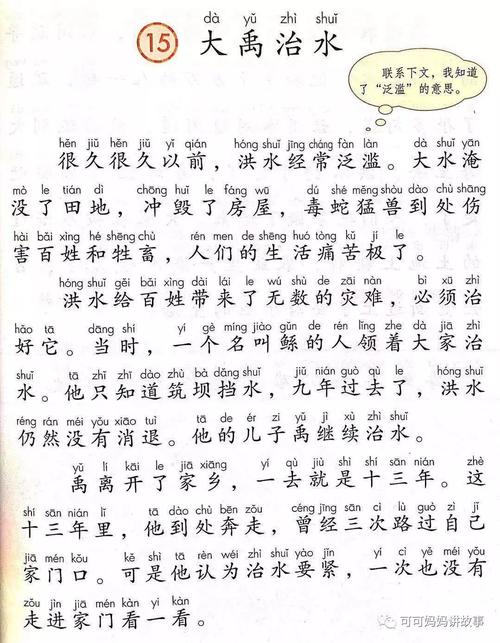 dà yǔ zhì shuǐ
15 大禹治水
联系下文，我知道
了“泛滥”的意思。
hěn jiǔ hěn jiǔ yǐ qián hóng shuǐ jīng cháng fàn làn dà shuǐ yān
很久很久以前，洪水经常泛滥。大水淹
mò le tián dì chōng huǐ le fáng wū dú shé měng shòu dào chù shāng
没了田地，冲毁了房屋，毒蛇猛兽到处伤
hài bǎi xìng hé shēng chù rén men de shēng huó tòng kǔ jí le
害百姓和牲畜，人们的生活痛苦极了。
hóng shuǐ gěi bǎi xìng dài lái le wú shù de zāi nàn bì xū zhì
洪水给百姓带来了无数的灾难，必须治
hǎo tā dāng shí yí gè míng jiào gǔn de rén lǐng zhe dà jiā zhì
好它。当时，一个名叫鲧的人领着大家治
shuǐ tā zhǐ zhī dào zhù bà dǎng shuǐ jiǔ nián guò qù le hóng shuǐ
水。他只知道筑坝挡水，九年过去了，洪水
réng rán méi yǒu xiāo tuì tā de ér zi yǔ jì xù zhì shuǐ
仍然没有消退。他的儿子禹继续治水。
yǔ lí kāi le jiā xiāng yí qù jiù shì shí sān nián zhè
禹离开了家乡，一去就是十三年。这
shí sān nián lǐ tā dào chù bēn zǒu céng jīng sān cì lù guò zì jǐ
十三年里，他到处奔走，曾经三次路过自己
jiā mén kǒu kě shì tā rèn wéi zhì shuǐ yào jǐn yí cì yě méi yǒu
家门口。可是他认为治水要紧，一次也没有
zǒu jìn jiā mén kàn yi kàn
走进家门看一看。
可可妈妈讲故事